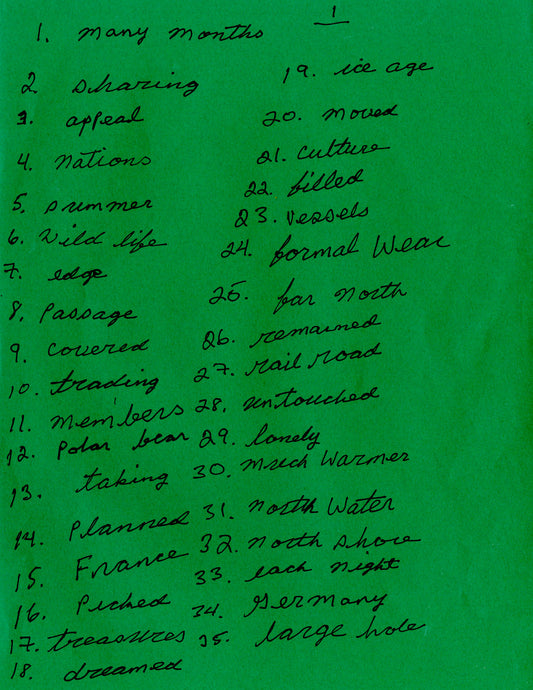 1
1. many months
2. sharing
3. appeal
4. nations
5. summer
6. Wild life
7. edge
8. Passage
9. covered
10. trading
11. members
12. Polar bear
13. taking
14. Planned
15. France
16. Picked
17. treasures
18. dreamed
19. ice age
20. moved
21. culture
22. filled
23. vessels
24. formal Wear
25. far North
26. remained
27. rail road
28. untouched
29. lonely
30. much Warmer
31. North Water
32. North shore
33. each night
34. Germany
35. large hole